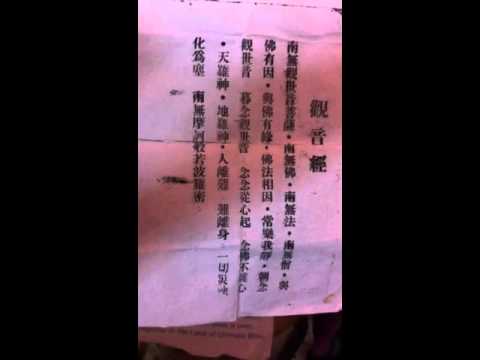 觀音經
南無觀世音菩薩・南無佛・南無法・南無僧・與
佛有因・與佛有緣・佛法相因・常樂我靜・朝念
觀世音 暮念觀世音 念念從心起 念佛不離心
・天羅神・地羅神・人離難 難離身・一切
化爲塵 南無摩訶般若波羅密
in the Land of Ultimate Bliss,